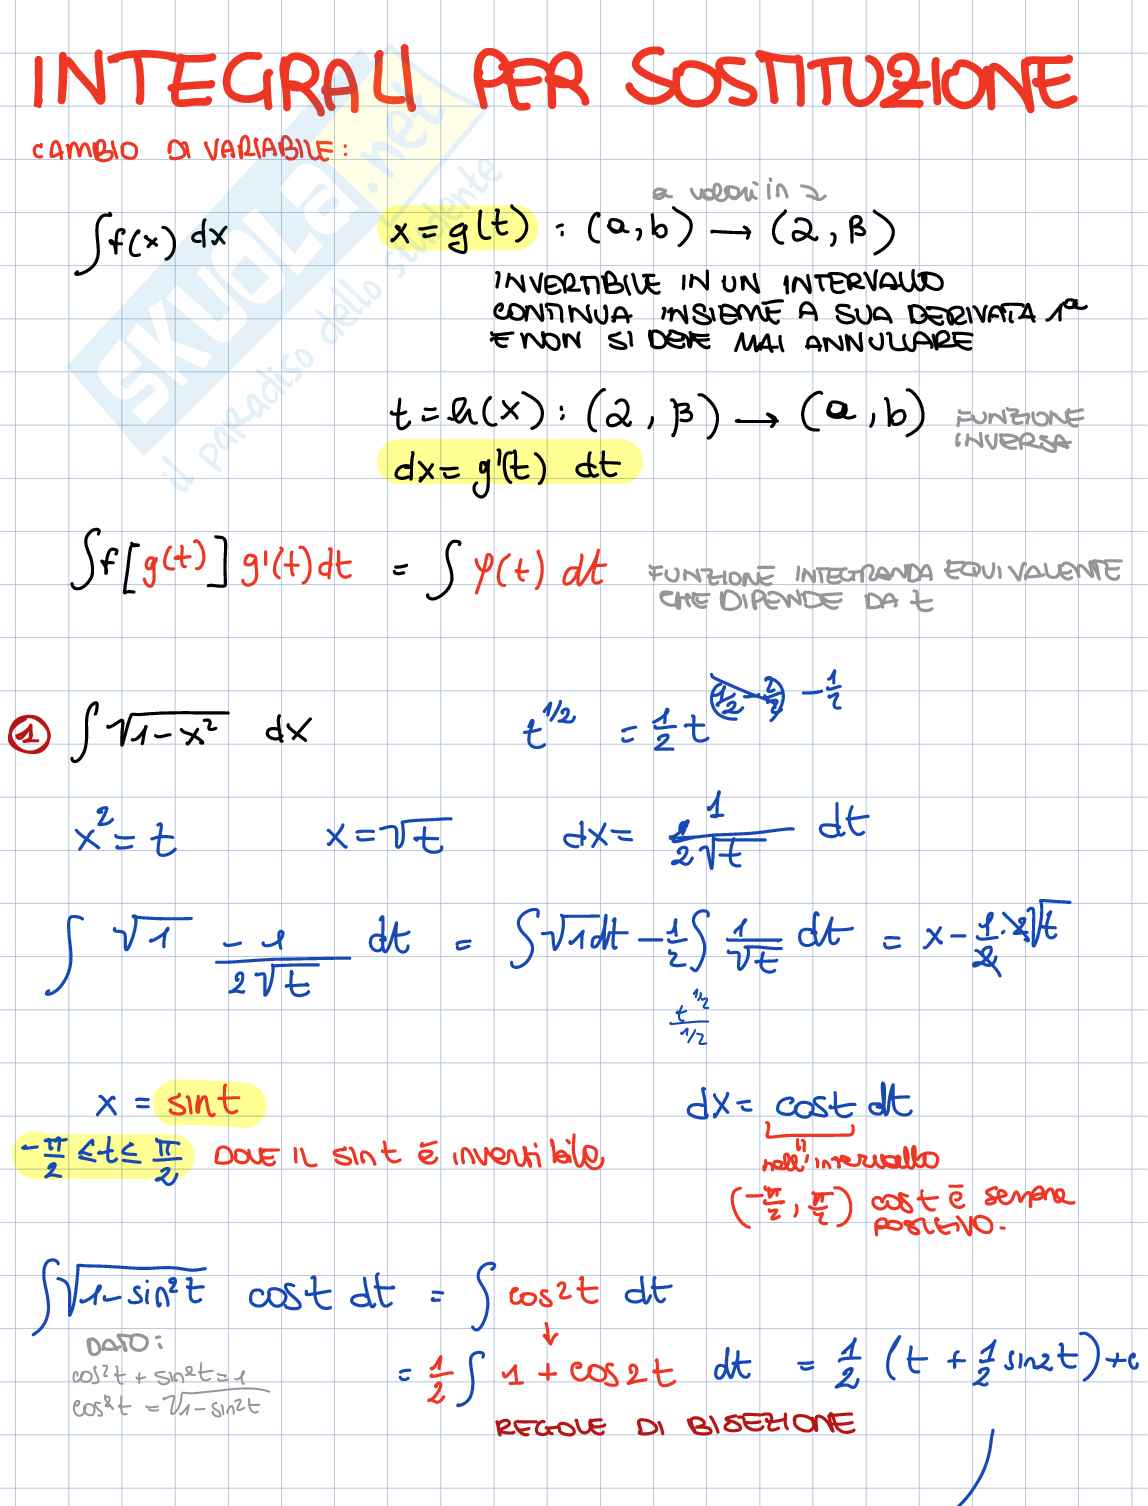 INTEGRALI PER SOSTITUZIONE
CAMBIO DI VARIABILE:
SKUOLA.net
il paradiso dello studente
a valori in
∫f(x) dx x = g(t) : (a,b) → (α,β)
INVERTIBILE IN UN INTERVALLO
CONTINUA INSIEME A SUA DERIVATA 1ª
E NON SI DEVE MAI ANNULLARE
t = h(x) : (α,β) → (a,b) FUNZIONE INVERSA
dx = g'(t) dt
∫f[g(t)] g'(t) dt = ∫ φ(t) dt FUNZIONE INTEGRANDA EQUIVALENTE
CHE DIPENDE DA t
① ∫√(1-x²) dx t^(1/2) = 1/2 t^(1/2 - 2/2) -1/2
x² = t x = √t dx = 1/(2√t) dt
∫ √1 -1/(2√t) dt = ∫√1 dt - 1/2 ∫ 1/√t dt = x - 1/2 · 2√t
t^(1/2)/(1/2)
x = sin t dx = cos t dt
-π/2 ≤ t ≤ π/2 DOVE IL sin t È invertibile nell'intervallo
(-π/2, π/2) cos t è sempre
POSITIVO.
∫√(1-sin²t) cos t dt = ∫ cos²t dt
DATO:
cos²t + sin²t = 1
cos²t = √(1-sin²t)
= 1/2 ∫ 1 + cos2t dt = 1/2 (t + 1/2 sin2t) + c
REGOLE DI BISEZIONE